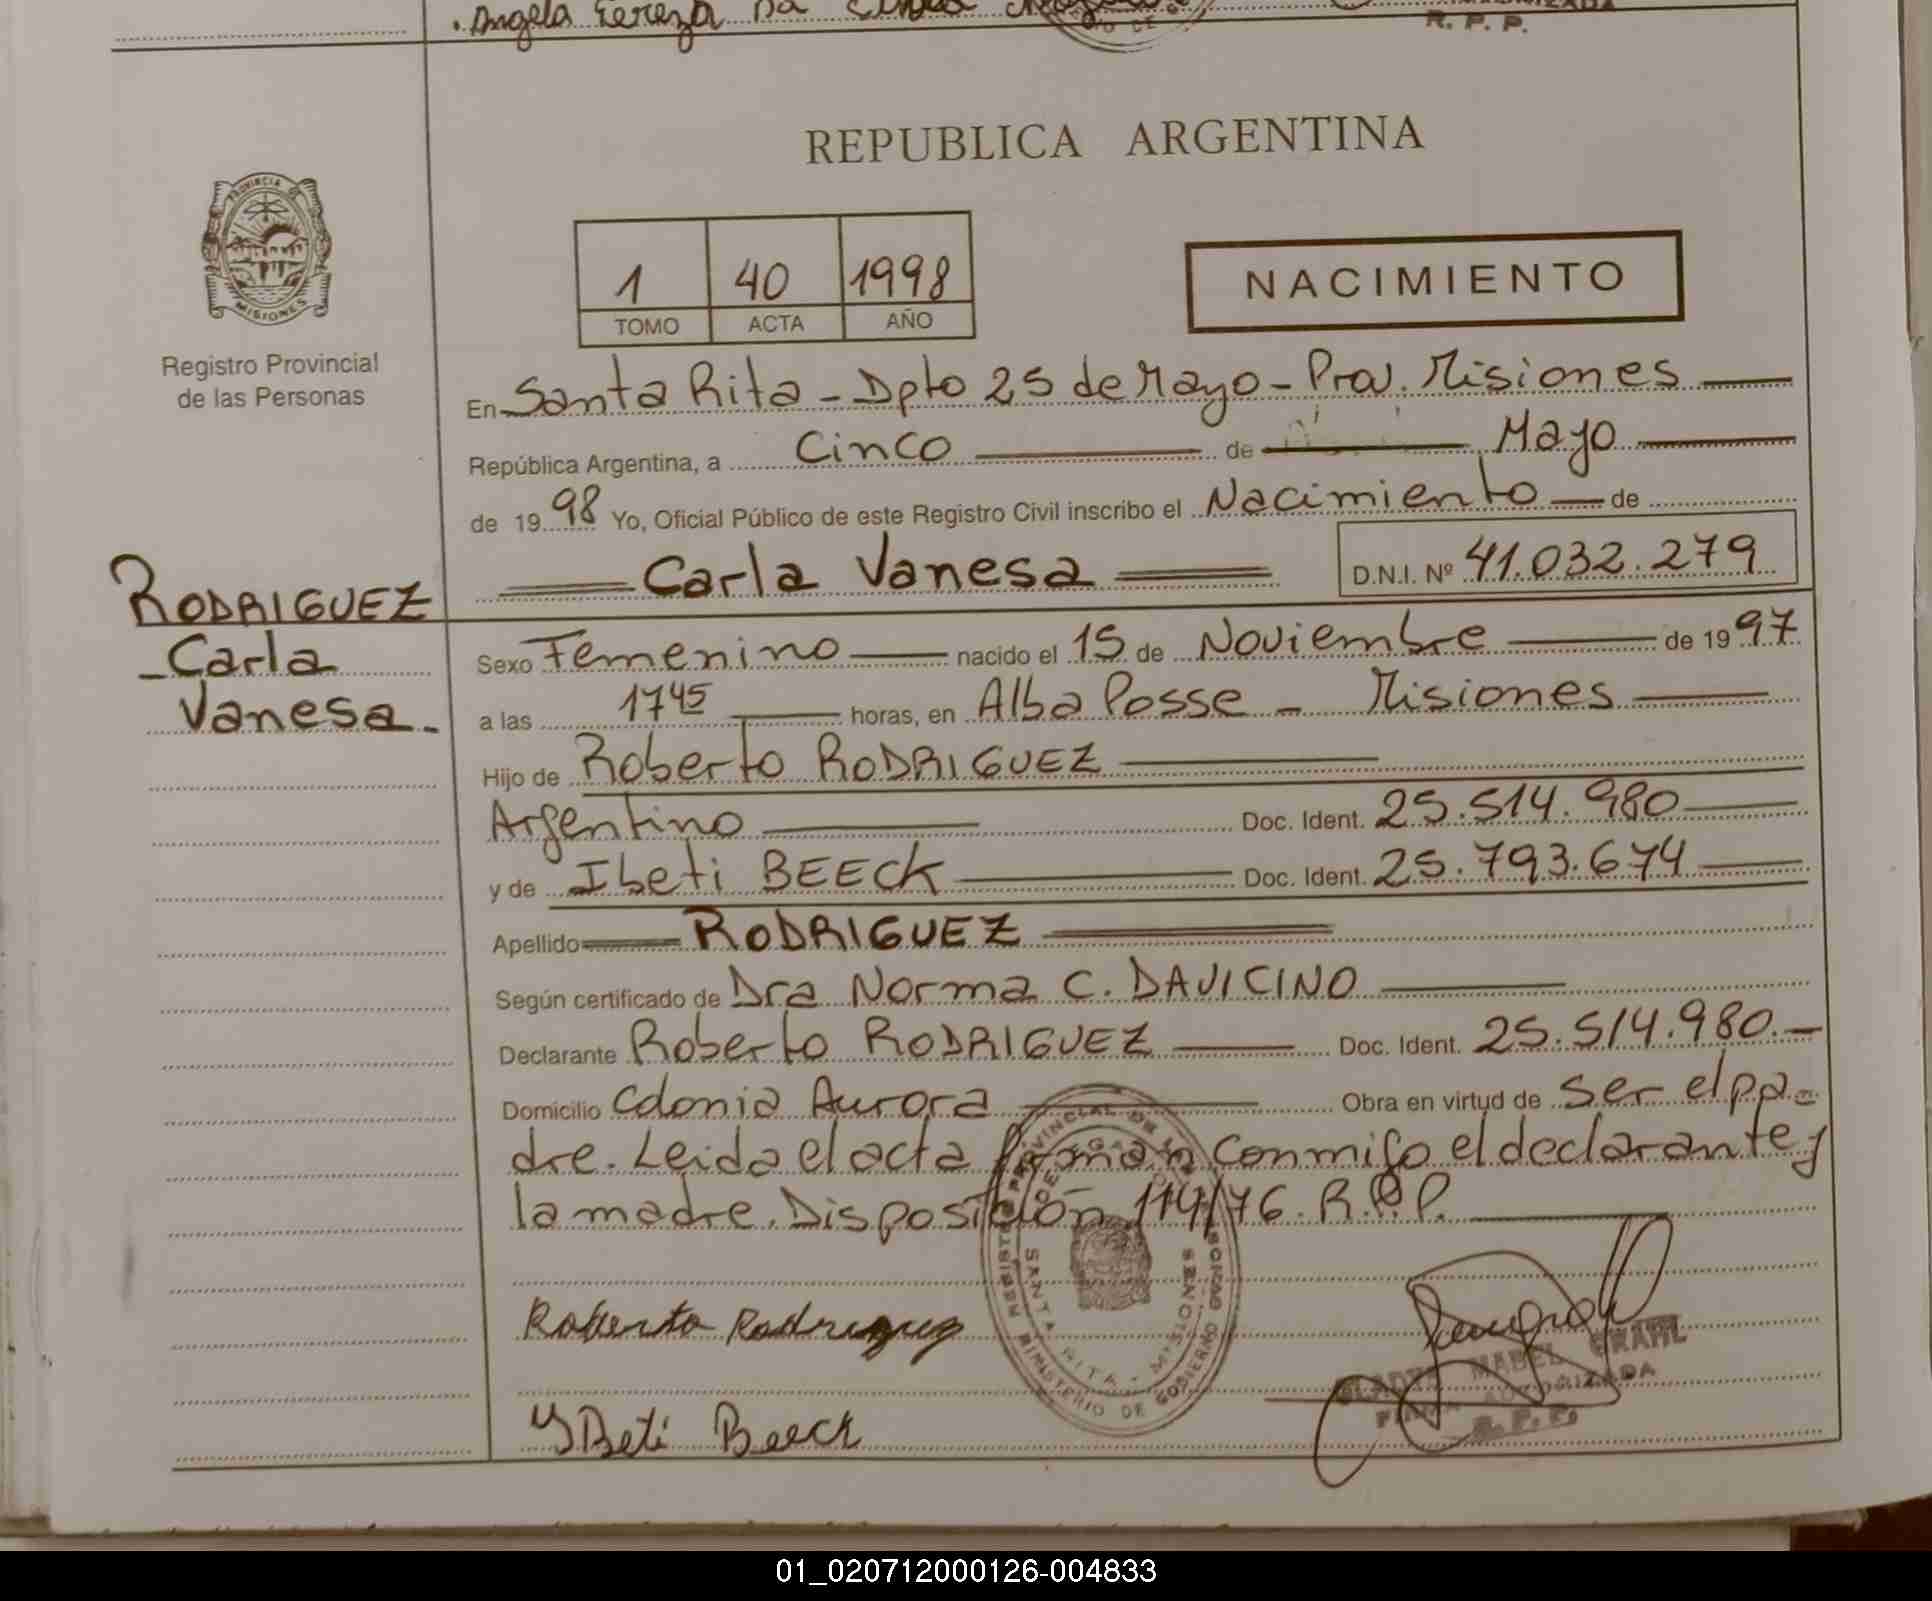 . Angela Tereza Da
R. P. P.
REPUBLICA ARGENTINA
PROVINCIA DE
MISIONES
Registro Provincial
de las Personas
1 40 1998
TOMO ACTA AÑO
NACIMIENTO
En Santa Rita - Dpto 25 de Mayo - Prov. Misiones
República Argentina, a Cinco de Mayo
de 1998 Yo, Oficial Público de este Registro Civil inscribo el Nacimiento de
Carla Vanesa D.N.I. Nº 41.032.279
RODRIGUEZ
- Carla
Vanesa -
Sexo Femenino nacido el 15 de Noviembre de 1997
a las 1745 horas, en Alba Posse - Misiones
Hijo de Roberto RODRIGUEZ
Argentino Doc. Ident. 25.514.980
y de Ibeti BEECK Doc. Ident. 25.793.674
Apellido RODRIGUEZ
Según certificado de Dra Norma C. DAVICINO
Declarante Roberto RODRIGUEZ Doc. Ident. 25.514.980.-
Domicilio Colonia Aurora Obra en virtud de ser el pa-
dre. Leida el acta firman conmigo el declarante y
la madre. Disposición 114/76. R.P.P.
Roberto Rodriguez
YBeti Beeck
SANTA RITA - MISIONES
MINISTERIO DE GOBIERNO
GLADYS MABEL
FIRMA AUTORIZADA
R. P. P.
01_020712000126-004833